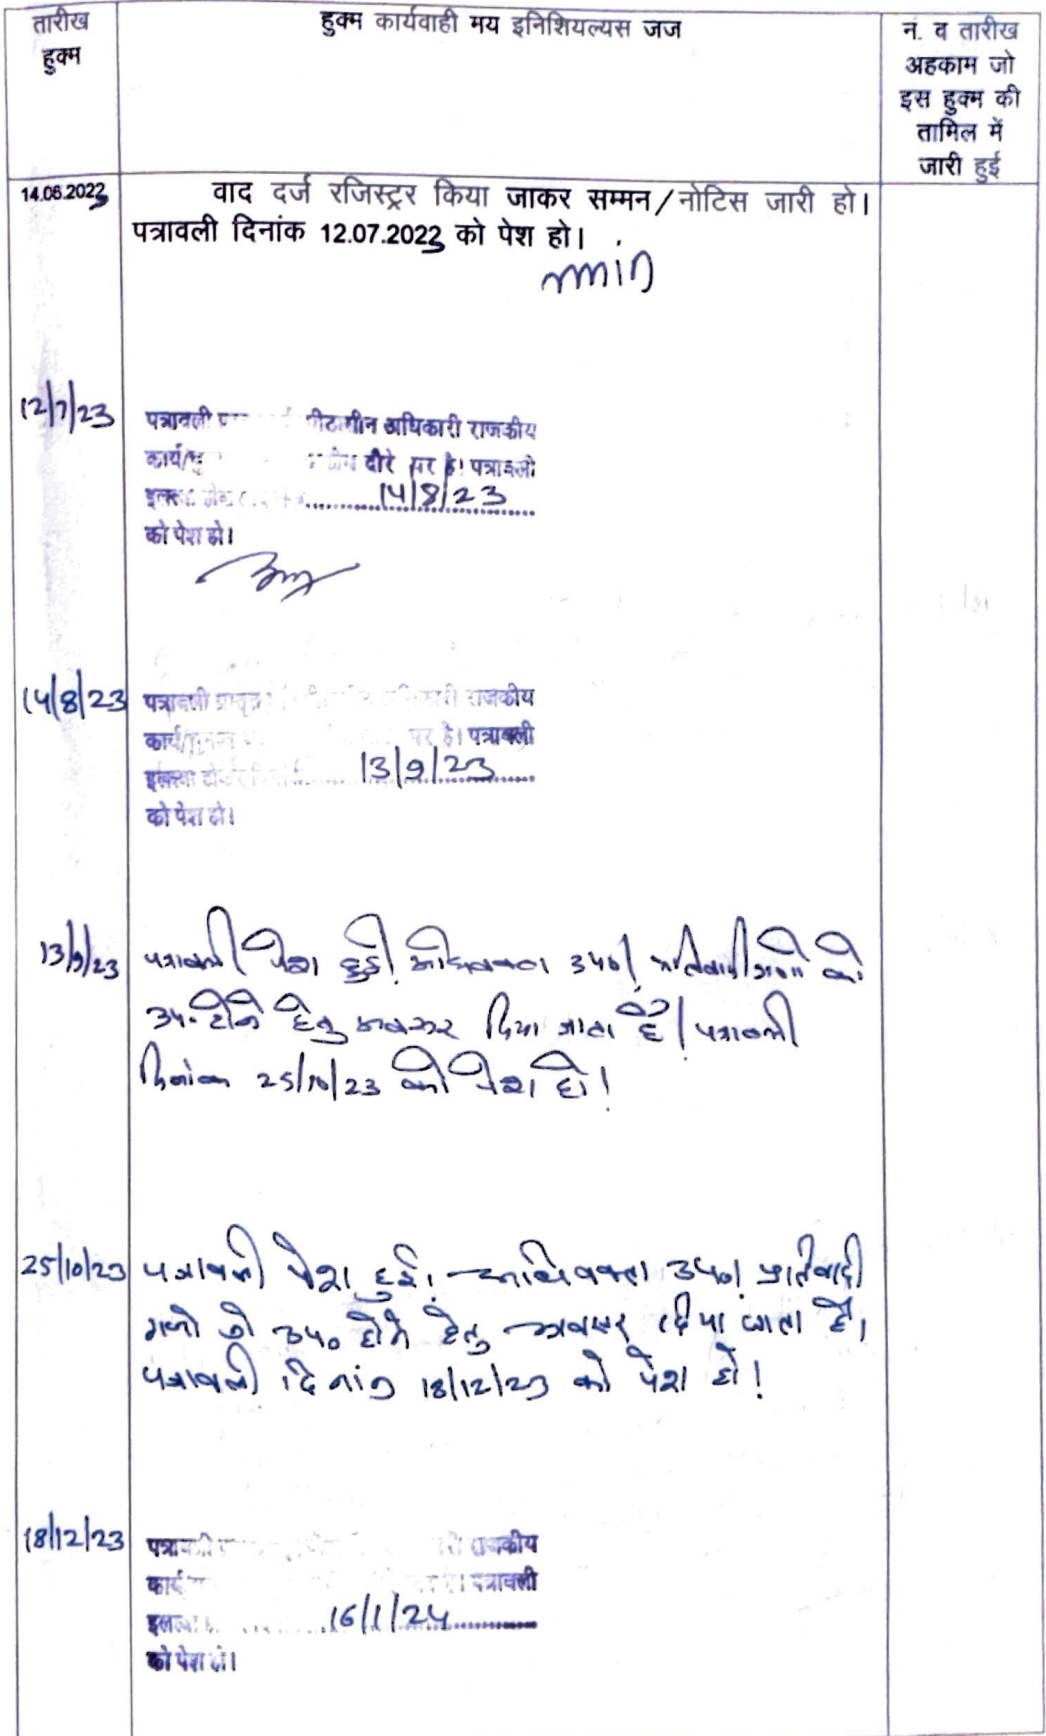 तारीख
हुक्म
हुक्म कार्यवाही मय इनिशियल्यस जज
न. व तारीख
अहकाम जो
इस हुक्म की
तामिल में
जारी हुई
14.06.2023 वाद दर्ज रजिस्ट्रर किया जाकर सम्मन/नोटिस जारी हो।
पत्रावली दिनांक 12.07.2023 को पेश हो।
12/7/23 पत्रावली अधिकारी राजकीय
कार्य/ दौरे पर है। पत्रावली
14/8/23
को पेश हो।
14/8/23 पत्रावली राजकीय
कार्य/ पर है। पत्रावली
13/9/23
को पेश हो।
13/9/23 पत्रावली पेश हुई। अधिवक्ता उप०। प्रतिवादीगणों को
उप. होने हेतु अवसर दिया जाता है। पत्रावली
दिनांक 25/10/23 को पेश हो!
25/10/23 पत्रावली पेश हुई। अधिवक्ता उप०। प्रतिवादी
गणो को उप० होने हेतु अवसर दिया जाता है।
पत्रावली दिनांक 18/12/23 को पेश हो!
18/12/23 राजकीय
कार्य पत्रावली
16/1/24
को पेश हो।